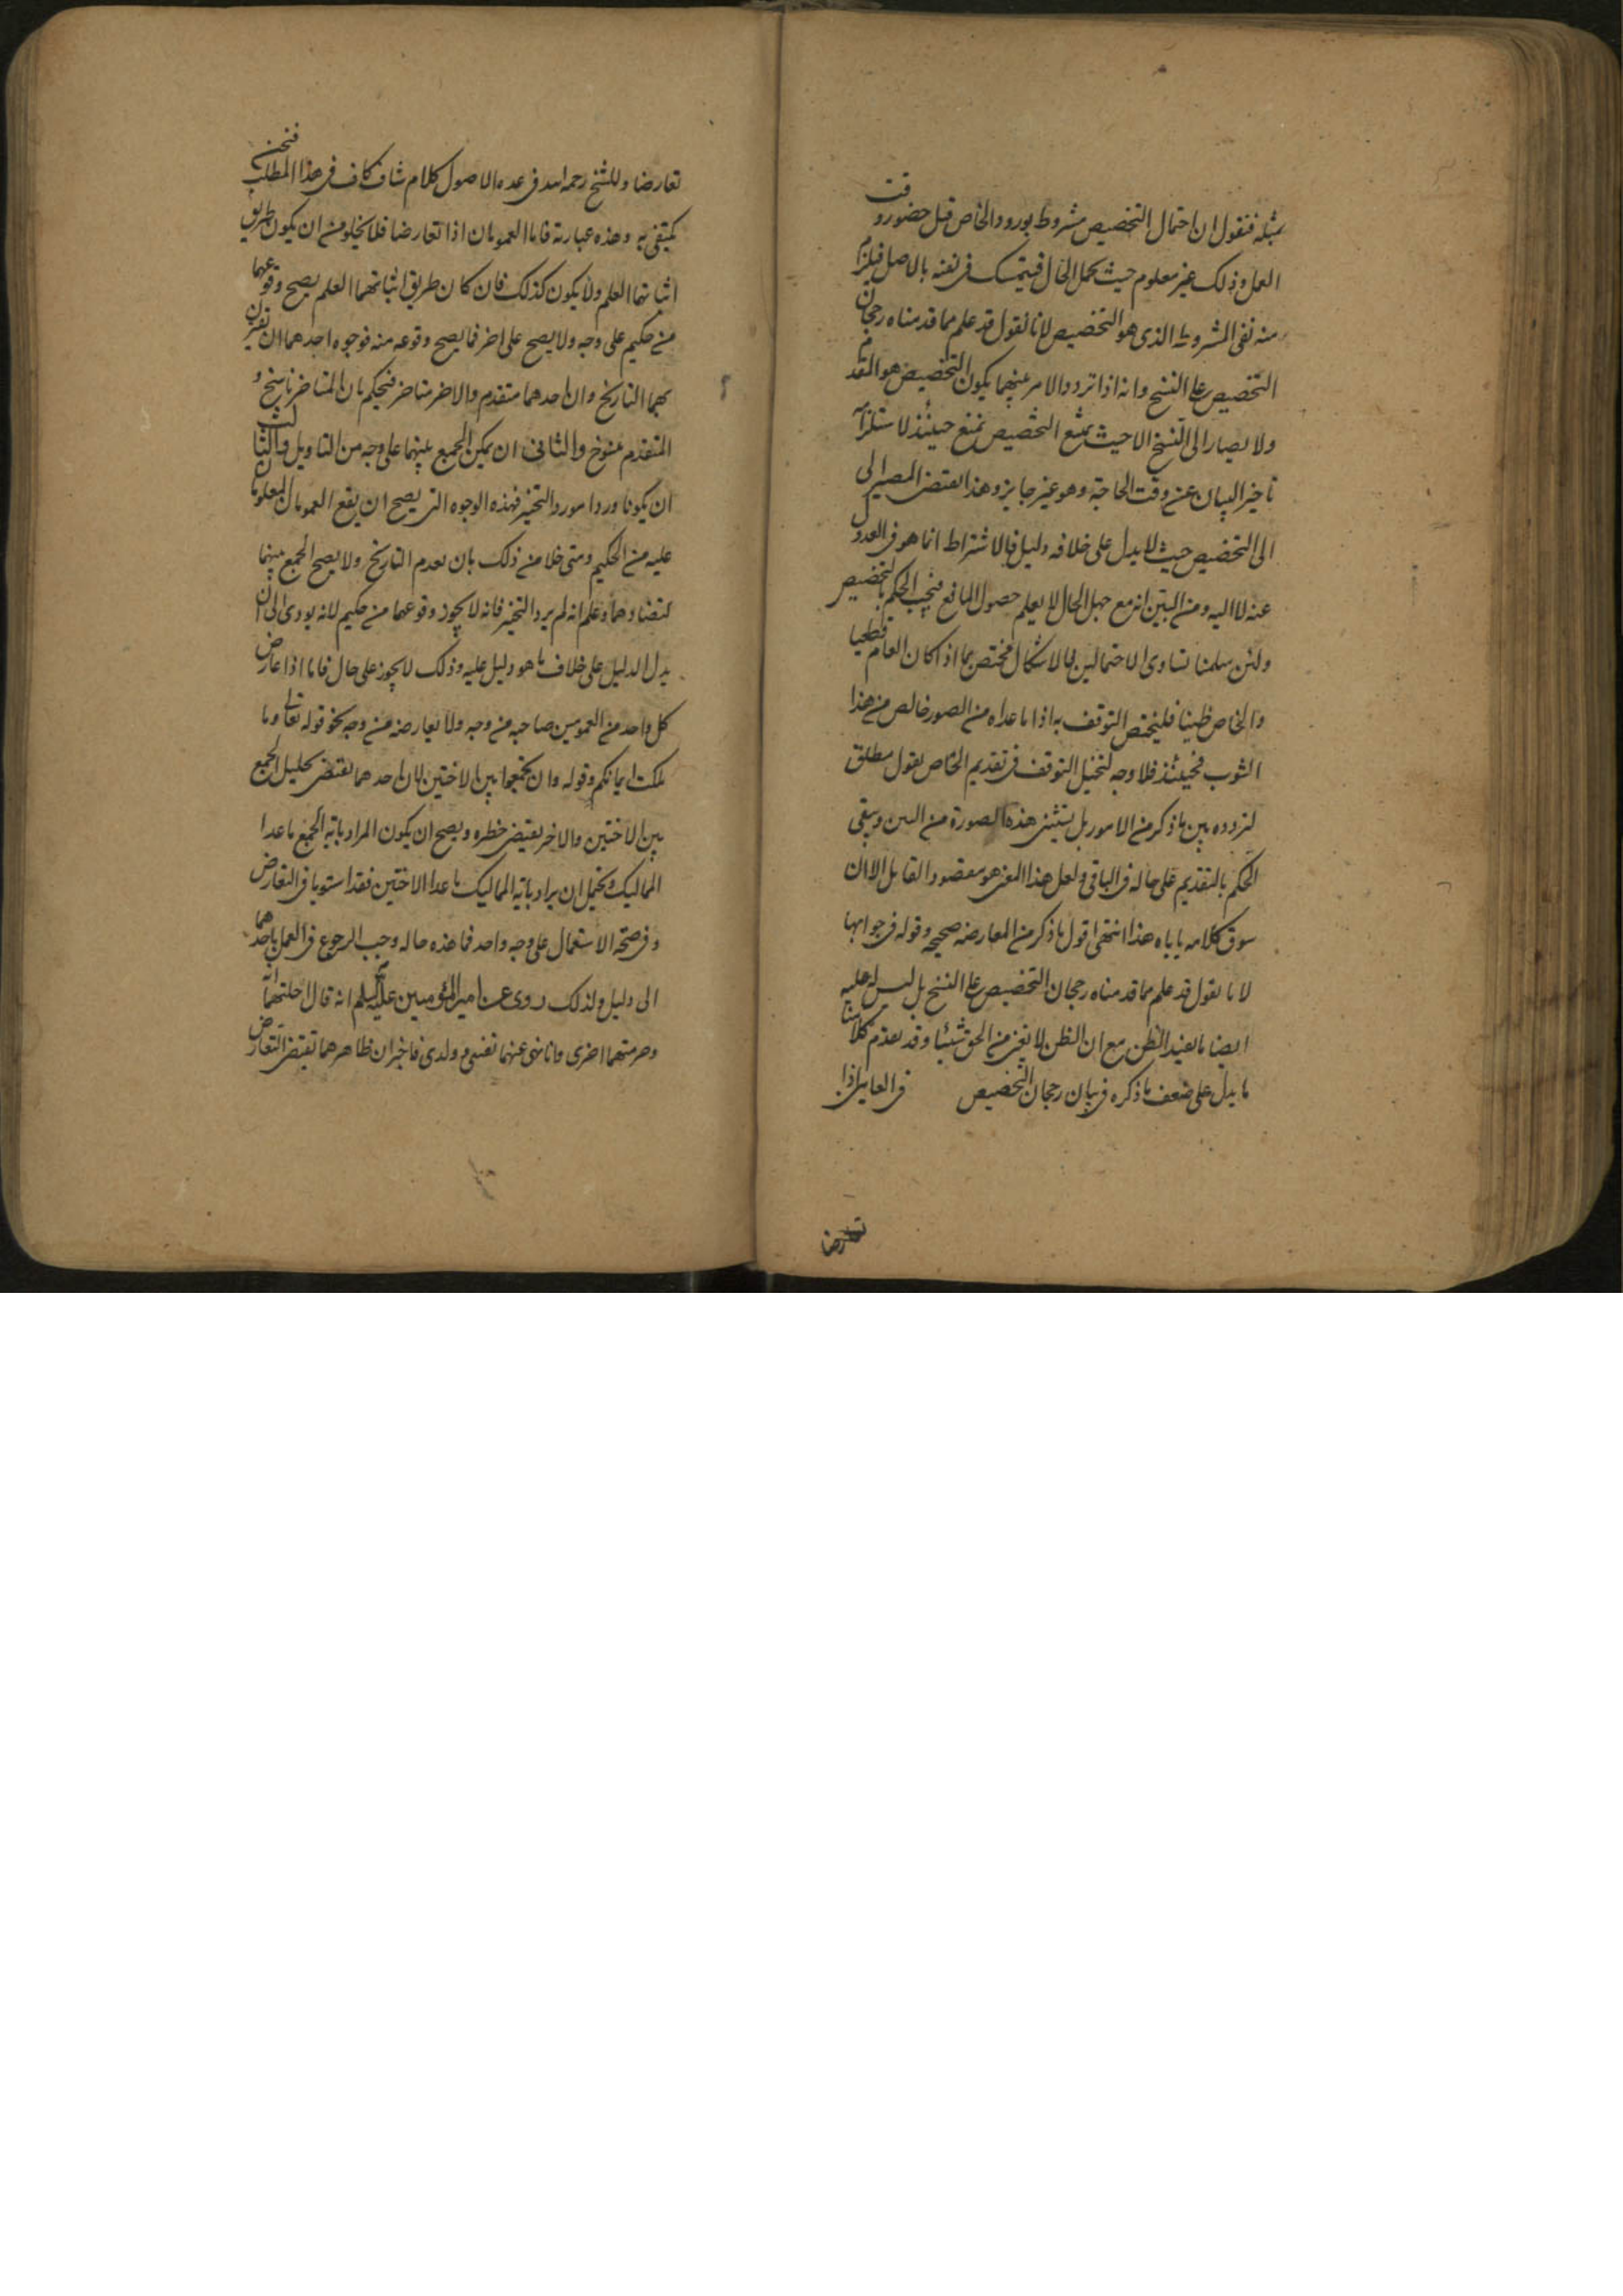 بمثله فنقول ان احتمال التخصيص مشروط بورود الخاص قبل حضور وقت
العمل وذلك غير معلوم حيث يحمل الحال فيتمسك فى نفيه بالاصل فيلزم
منه نفى المشروط الذى هو التخصيص لانا نقول قد علم مما قدمناه رجحان
التخصيص على النسخ وانه اذا تردد الامر بينهما يكون التخصيص هو المقدم
ولا يصار الى النسخ الا حيث يمتنع التخصيص يمتنع حينئذ لاستلزامه
تاخير البيان عن وقت الحاجة وهو غير جايز وهذا يقتضى المصير الى
الى التخصيص حيث لا يدل على خلافه دليل فالاشتراط انما هو فى العدول
عنه لا اليه ومن البين انه مع جهل الحال لا يعلم حصول المانع فيجب الحكم بالتخصيص
ولئن سلمنا تساوى الاحتمالين فالاشكال مختص بما اذا كان العام قطعيا
والخاص ظنيا فليختص التوقف به اذا ما عداه من الصور خالص من هذا
الثوب فحينئذ فلا وجه لتخيل التوقف فى تقديم الخاص بقول مطلق
لتردده بين ما ذكر من الامور بل يستثنى هذه الصورة من البين ويبقى
الحكم بالتقديم على حاله فى الباقى ولعل هذا المعنى هو مقصود القايل الا ان
سوق كلامه ياباه هذا انتهى اقول ما ذكر من المعارضه صحيحه وقوله فى جوابها
لانا نقول قد علم مما قدمناه رجحان التخصيص على النسخ بل ليس له عليه
ايضا ما يفيد الظن مع ان الظن لا يغنى من الحق شيئا وقد تقدم كلامنا
ما يدل على ضعف ما ذكره فى بيان رجحان التخصيص فى العامين اذا
تعارضا
تعارضا وللشيخ رحمه الله فى عده الاصول كلام شاف كاف فى هذا المطلب فنحن
نكتفى به وهذه عبارته فاما العمومان اذا تعارضا فلا يخلو من ان يكون طريق
اثباتهما العلم ولا يكون كذلك فان كان طريق اثباتهما العلم يصح وقوعهما
من حكيم على وجه ولا يصح على اخر فما يصح وقوعه منه فوجوه احدهما ان تقترن
بهما التاريخ وان احدهما متقدم والاخر متاخر فيحكم بان المتاخر ناسخ و
المتقدم منسوخ والثانى ان يمكن الجمع بينهما على وجه من التاويل والثالث
ان يكونا وردا مورد التخيير فهذه الوجوه التى يصح ان يقع العمومان المعلومان
عليه من الحكيم ومتى خلا من ذلك بان يعدم التاريخ ولا يصح الجمع بينهما
لتضادهما وعلم انه لم يرد التخيير فانه لا يجوز وقوعهما من حكيم لانه يودى الى ان
يدل الدليل على خلاف ما هو دليل عليه وذلك لا يجوز على حال فاما اذا عارض
كل واحد من العمومين صاحبه من وجه ولا يعارضه من وجه نحو قوله تعالى وما
ملكت ايمانكم وقوله وان تجمعوا بين الاختين لان احدهما يقتضى تحليل الجمع
بين الاختين والاخر يقتضى حظره ويصح ان يكون المراد باية الجمع ما عدا
المماليك ويحتمل ان يراد باية المماليك ما عدا الاختين فقد استويا فى التعارض
وفى صحة الاستعمال على وجه واحد فما هذه حاله وجب الرجوع فى العمل باحدهما
الى دليل ولذلك روى عن امير المؤمنين عليه السلم انه قال احلتهما اية
وحرمتهما اخرى وانا انهى عنهما نفسى وولدى فاخبر ان ظاهرهما تقتضى التعارض